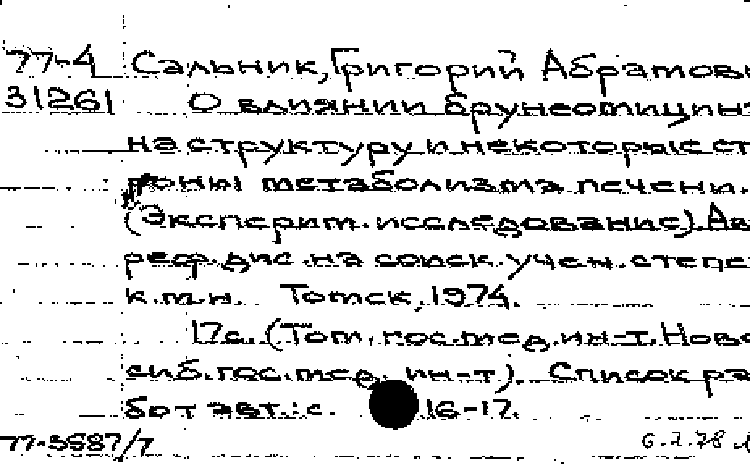 77-4 Сальник, Григорий Абрамови
31261 О влиянии брунеомицин
на структуру и некоторые ст
роны метаболизма печени.
(Эксперим. исследование). Ав
реф. дис. на соиск. учен. степе
к.м.н. Томск, 1974.
17с. (Том. гос. мед. ин-т. Ново
сиб. гос. мед. ин-т). Список ра
бот авт.: с. 16-17.
77-3687/7 6.2.78